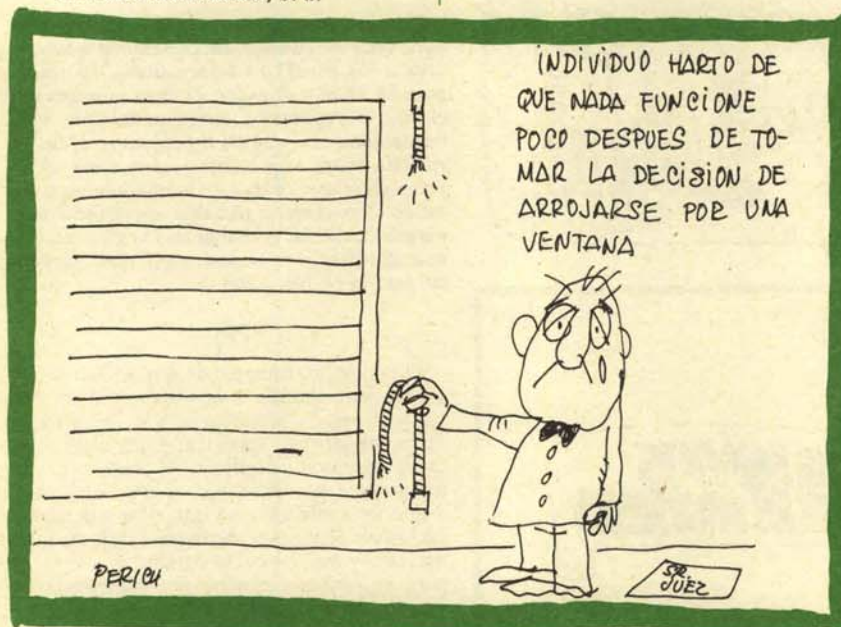 INDIVIDUO HARTO DE
QUE NADA FUNCIONE
POCO DESPUES DE TO-
MAR LA DECISION DE
ARROJARSE POR UNA
VENTANA
SR.
JUEZ
PERICH